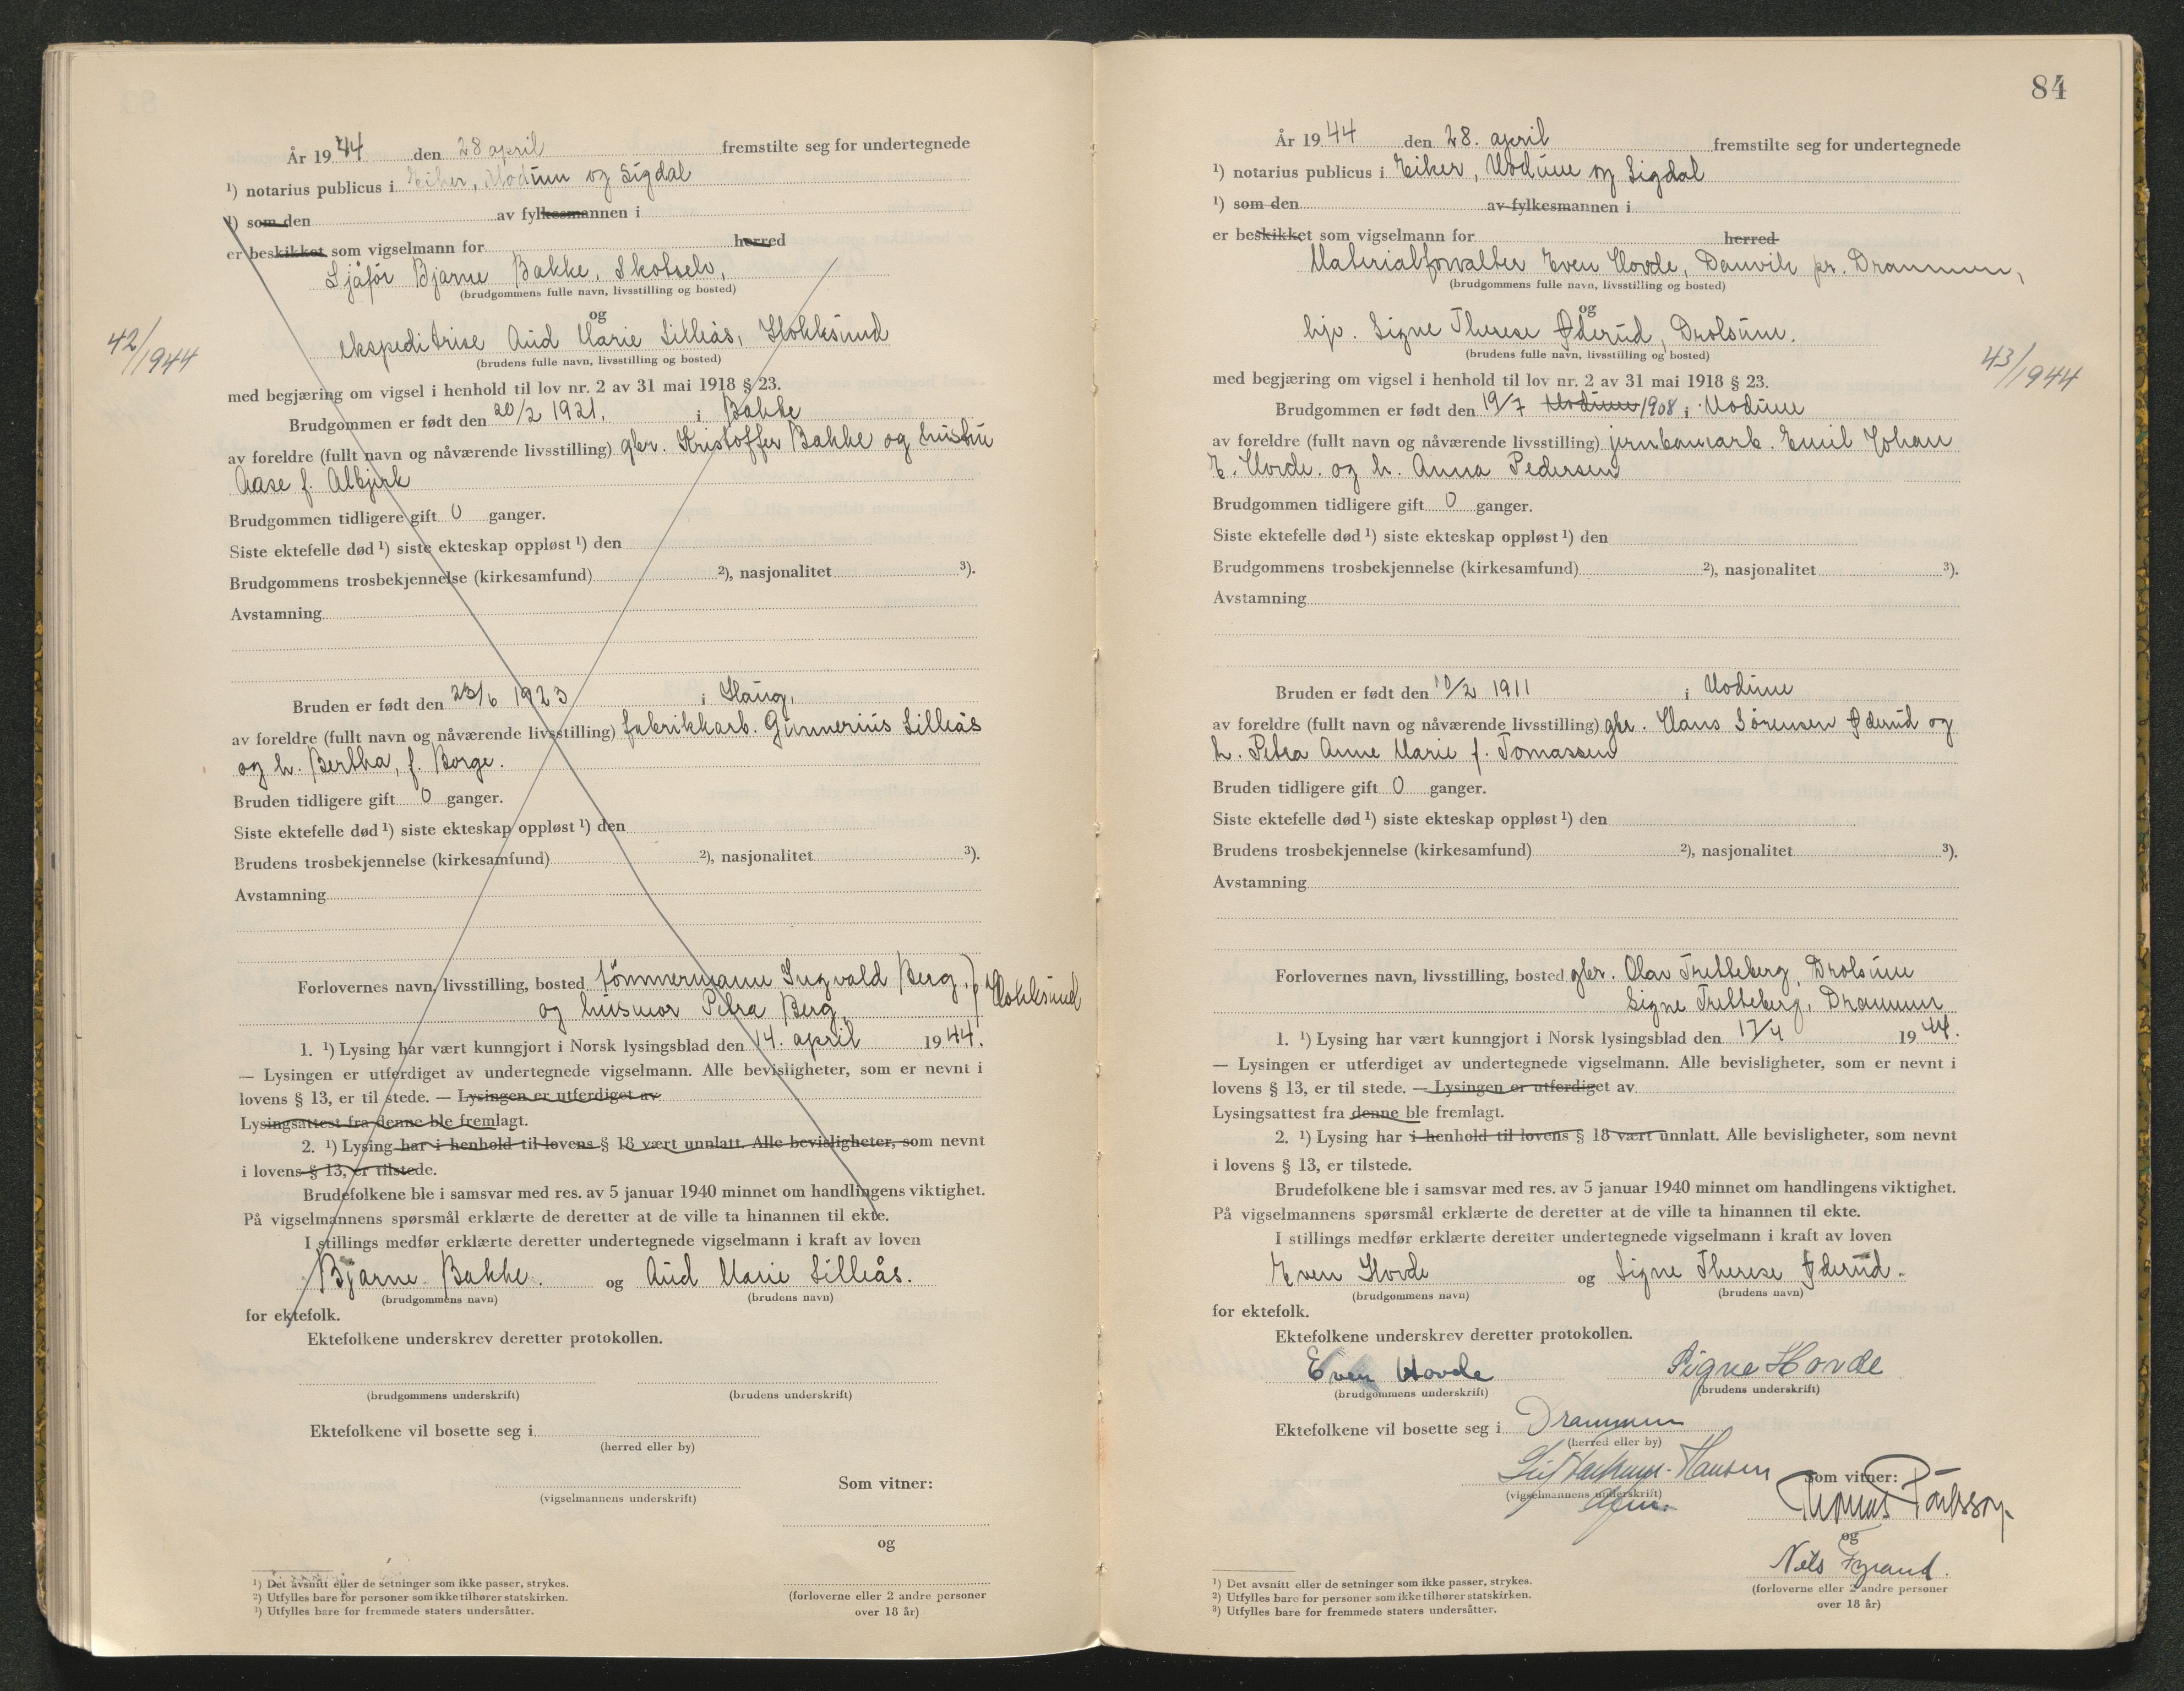 År 1944 den 28 april fremstilte seg for undertegnede
¹) notarius publicus i Eiker, Modum og Sigdal
¹) som den av fylkesmannen i
er beskikket som vigselmann for herred
Sjåfør Bjarne Bakke, Skotselv,
(brudgommens fulle navn, livsstilling og bosted)
og
ekspeditrise Aud Marie Lilleås, Hokksund
(brudens fulle navn, livsstilling og bosted)
42/1944
med begjæring om vigsel i henhold til lov nr. 2 av 31 mai 1918 § 23.
Brudgommen er født den 20/2 1921. i Bakke
av foreldre (fullt navn og nåværende livsstilling) gbr. Kristoffer Bakke og hustru
Aase f. Albjerk
Brudgommen tidligere gift 0 ganger.
Siste ektefelle død ¹) siste ekteskap oppløst ¹) den
Brudgommens trosbekjennelse (kirkesamfund) ²), nasjonalitet ³).
Avstamning
Bruden er født den 23/6 1923 i Haug,
av foreldre (fullt navn og nåværende livsstilling) fabrikkarb. Gunnerius Lilleås
og h. Bertha, f. Borge.
Bruden tidligere gift 0 ganger.
Siste ektefelle død ¹) siste ekteskap oppløst ¹) den
Brudens trosbekjennelse (kirkesamfund) ²), nasjonalitet ³).
Avstamning
Forlovernes navn, livsstilling, bosted tömmermann Ingvald Berg, } Hokksund
og husmor Petra Berg,
1. ¹) Lysing har vært kunngjort i Norsk lysingsblad den 14. april 1944.
— Lysingen er utferdiget av undertegnede vigselmann. Alle bevisligheter, som er nevnt i
lovens § 13, er til stede. — Lysingen er utferdiget av
Lysingsattest fra denne ble fremlagt.
2. ¹) Lysing har i henhold til lovens § 18 vært unnlatt. Alle bevisligheter, som nevnt
i lovens § 13, er tilstede.
Brudefolkene ble i samsvar med res. av 5 januar 1940 minnet om handlingens viktighet.
På vigselmannens spørsmål erklærte de deretter at de ville ta hinannen til ekte.
I stillings medfør erklærte deretter undertegnede vigselmann i kraft av loven
Bjarne Bakke. og Aud Marie Lilleås.
(brudgommens navn) (brudens navn)
for ektefolk.
Ektefolkene underskrev deretter protokollen.
(brudgommens underskrift) (brudens underskrift)
Ektefolkene vil bosette seg i
(herred eller by)
Som vitner:
(vigselmannens underskrift)
og
¹) Det avsnitt eller de setninger som ikke passer, strykes.
²) Utfylles bare for personer som ikke tilhører statskirken.
³) Utfylles bare for fremmede staters undersåtter.
(forloverne eller 2 andre personer
over 18 år)
84
År 1944 den 28. april fremstilte seg for undertegnede
¹) notarius publicus i Eiker, Modum og Sigdal
¹) som den av fylkesmannen i
er beskikket som vigselmann for herred
Materialforvalter Even Hovde, Danvik pr. Drammen,
(brudgommens fulle navn, livsstilling og bosted)
og
hjv. Signe Therese Øderud, Drolsum.
(brudens fulle navn, livsstilling og bosted)
43/1944
med begjæring om vigsel i henhold til lov nr. 2 av 31 mai 1918 § 23.
Brudgommen er født den 19/7 Modum 1908 i Modum
av foreldre (fullt navn og nåværende livsstilling) jernbanearb. Emil Johan
E. Hovde. og h. Anna Pedersen
Brudgommen tidligere gift 0 ganger.
Siste ektefelle død ¹) siste ekteskap oppløst ¹) den
Brudgommens trosbekjennelse (kirkesamfund) ²), nasjonalitet ³).
Avstamning
Bruden er født den 10/2 1911 i Modum
av foreldre (fullt navn og nåværende livsstilling) gbr. Hans Sørensen Øderud og
h. Petra Anne Marie f. Tomassen
Bruden tidligere gift 0 ganger.
Siste ektefelle død ¹) siste ekteskap oppløst ¹) den
Brudens trosbekjennelse (kirkesamfund) ²), nasjonalitet ³).
Avstamning
Forlovernes navn, livsstilling, bosted gbr. Olav Tretteberg, Drolsum
Signe Tretteberg, Drammen
1. ¹) Lysing har vært kunngjort i Norsk lysingsblad den 17/4 1944.
— Lysingen er utferdiget av undertegnede vigselmann. Alle bevisligheter, som er nevnt i
lovens § 13, er til stede. — Lysingen er utferdiget av
Lysingsattest fra denne ble fremlagt.
2. ¹) Lysing har i henhold til lovens § 18 vært unnlatt. Alle bevisligheter, som nevnt
i lovens § 13, er tilstede.
Brudefolkene ble i samsvar med res. av 5 januar 1940 minnet om handlingens viktighet.
På vigselmannens spørsmål erklærte de deretter at de ville ta hinannen til ekte.
I stillings medfør erklærte deretter undertegnede vigselmann i kraft av loven
Even Hovde og Signe Therese Øderud.
(brudgommens navn) (brudens navn)
for ektefolk.
Ektefolkene underskrev deretter protokollen.
Even Hovde Signe Hovde
(brudgommens underskrift) (brudens underskrift)
Ektefolkene vil bosette seg i Drammen
(herred eller by)
Hansen Som vitner:
(vigselmannens underskrift)
Thomas Paulsson
og
Nils
¹) Det avsnitt eller de setninger som ikke passer, strykes.
²) Utfylles bare for personer som ikke tilhører statskirken.
³) Utfylles bare for fremmede staters undersåtter.
(forloverne eller 2 andre personer
over 18 år)